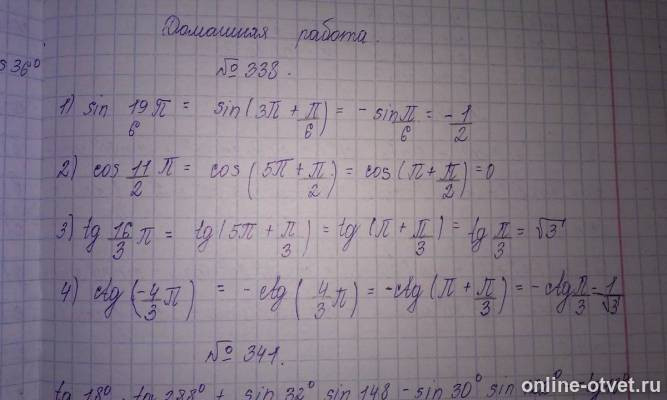 Домашняя работа.
s 36°
№ 338.
1) sin 19/6 π = sin(3π + π/6) = - sin π/6 = - 1/2
2) cos 11/2 π = cos(5π + π/2) = cos(π + π/2) = 0
3) tg 16/3 π = tg(5π + π/3) = tg(π + π/3) = tg π/3 = √3
4) ctg(-4/3 π) = - ctg(4/3 π) = -ctg(π + π/3) = - ctg π/3 = 1/√3
№ 341.
tg 18° · tg 288° + sin 32° sin 148 - sin 30° sin
online-otvet.ru